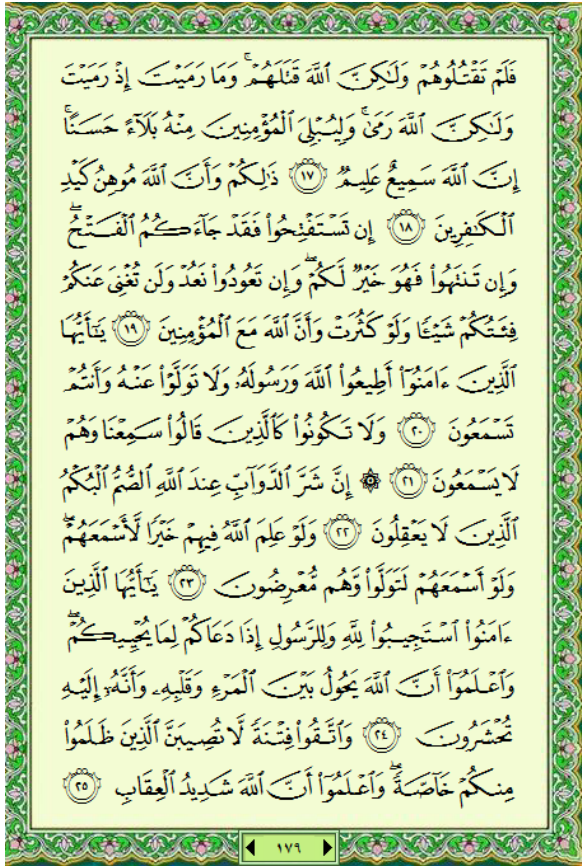 فَلَمْ تَقْتُلُوهُمْ وَلَٰكِنَّ ٱللَّهَ قَتَلَهُمْ ۚ وَمَا رَمَيْتَ إِذْ رَمَيْتَ
وَلَٰكِنَّ ٱللَّهَ رَمَىٰ ۚ وَلِيُبْلِىَ ٱلْمُؤْمِنِينَ مِنْهُ بَلَآءً حَسَنًا ۚ
إِنَّ ٱللَّهَ سَمِيعٌ عَلِيمٌ ١٧ ذَٰلِكُمْ وَأَنَّ ٱللَّهَ مُوهِنُ كَيْدِ
ٱلْكَٰفِرِينَ ١٨ إِن تَسْتَفْتِحُوا۟ فَقَدْ جَآءَكُمُ ٱلْفَتْحُ ۖ
وَإِن تَنتَهُوا۟ فَهُوَ خَيْرٌ لَّكُمْ ۖ وَإِن تَعُودُوا۟ نَعُدْ وَلَن تُغْنِىَ عَنكُمْ
فِئَتُكُمْ شَيْـًٔا وَلَوْ كَثُرَتْ وَأَنَّ ٱللَّهَ مَعَ ٱلْمُؤْمِنِينَ ١٩ يَٰٓأَيُّهَا
ٱلَّذِينَ ءَامَنُوٓا۟ أَطِيعُوا۟ ٱللَّهَ وَرَسُولَهُۥ وَلَا تَوَلَّوْا۟ عَنْهُ وَأَنتُمْ
تَسْمَعُونَ ٢٠ وَلَا تَكُونُوا۟ كَٱلَّذِينَ قَالُوا۟ سَمِعْنَا وَهُمْ
لَا يَسْمَعُونَ ٢١ ۞ إِنَّ شَرَّ ٱلدَّوَآبِّ عِندَ ٱللَّهِ ٱلصُّمُّ ٱلْبُكْمُ
ٱلَّذِينَ لَا يَعْقِلُونَ ٢٢ وَلَوْ عَلِمَ ٱللَّهُ فِيهِمْ خَيْرًا لَّأَسْمَعَهُمْ ۖ
وَلَوْ أَسْمَعَهُمْ لَتَوَلَّوا۟ وَّهُم مُّعْرِضُونَ ٢٣ يَٰٓأَيُّهَا ٱلَّذِينَ
ءَامَنُوا۟ ٱسْتَجِيبُوا۟ لِلَّهِ وَلِلرَّسُولِ إِذَا دَعَاكُمْ لِمَا يُحْيِيكُمْ ۖ
وَٱعْلَمُوٓا۟ أَنَّ ٱللَّهَ يَحُولُ بَيْنَ ٱلْمَرْءِ وَقَلْبِهِۦ وَأَنَّهُۥٓ إِلَيْهِ
تُحْشَرُونَ ٢٤ وَٱتَّقُوا۟ فِتْنَةً لَّا تُصِيبَنَّ ٱلَّذِينَ ظَلَمُوا۟
مِنكُمْ خَآصَّةً ۖ وَٱعْلَمُوٓا۟ أَنَّ ٱللَّهَ شَدِيدُ ٱلْعِقَابِ ٢٥
١٧٩